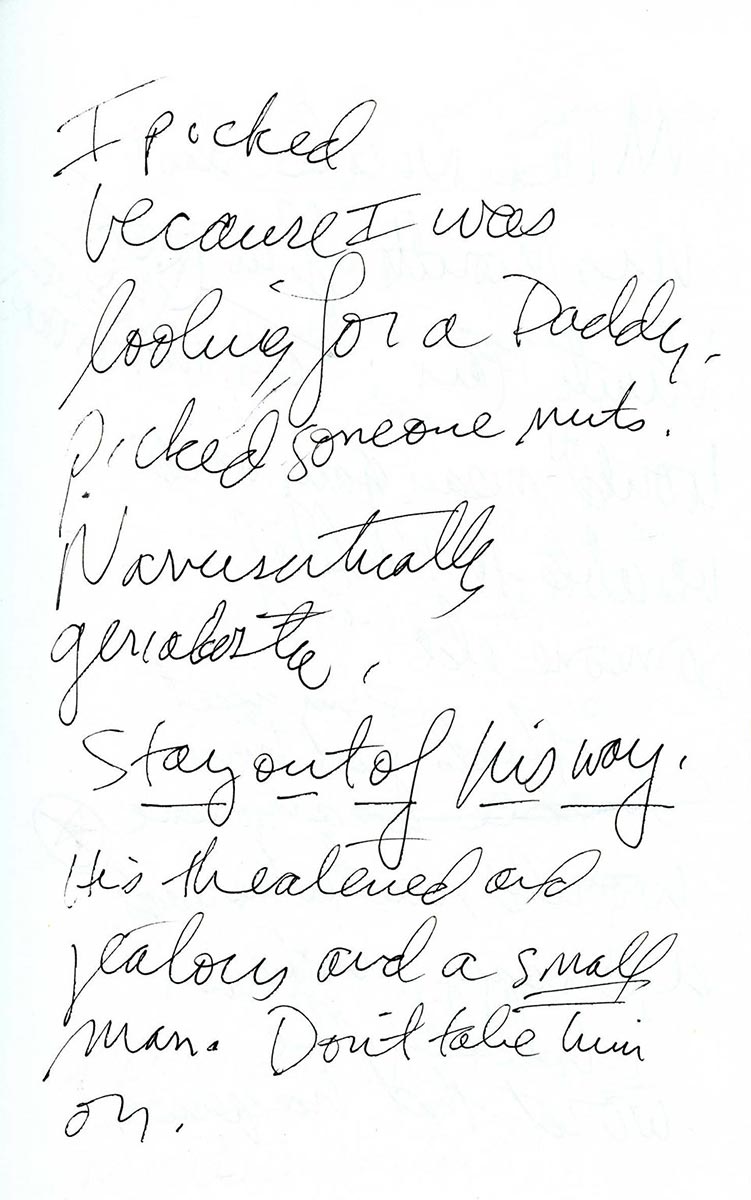 I picked
because I was
looking for a Daddy.
picked someone nuts.
Narcissistically
Stay out of his way.
His threatened and
jealous and a small
man. Don't take him
on.